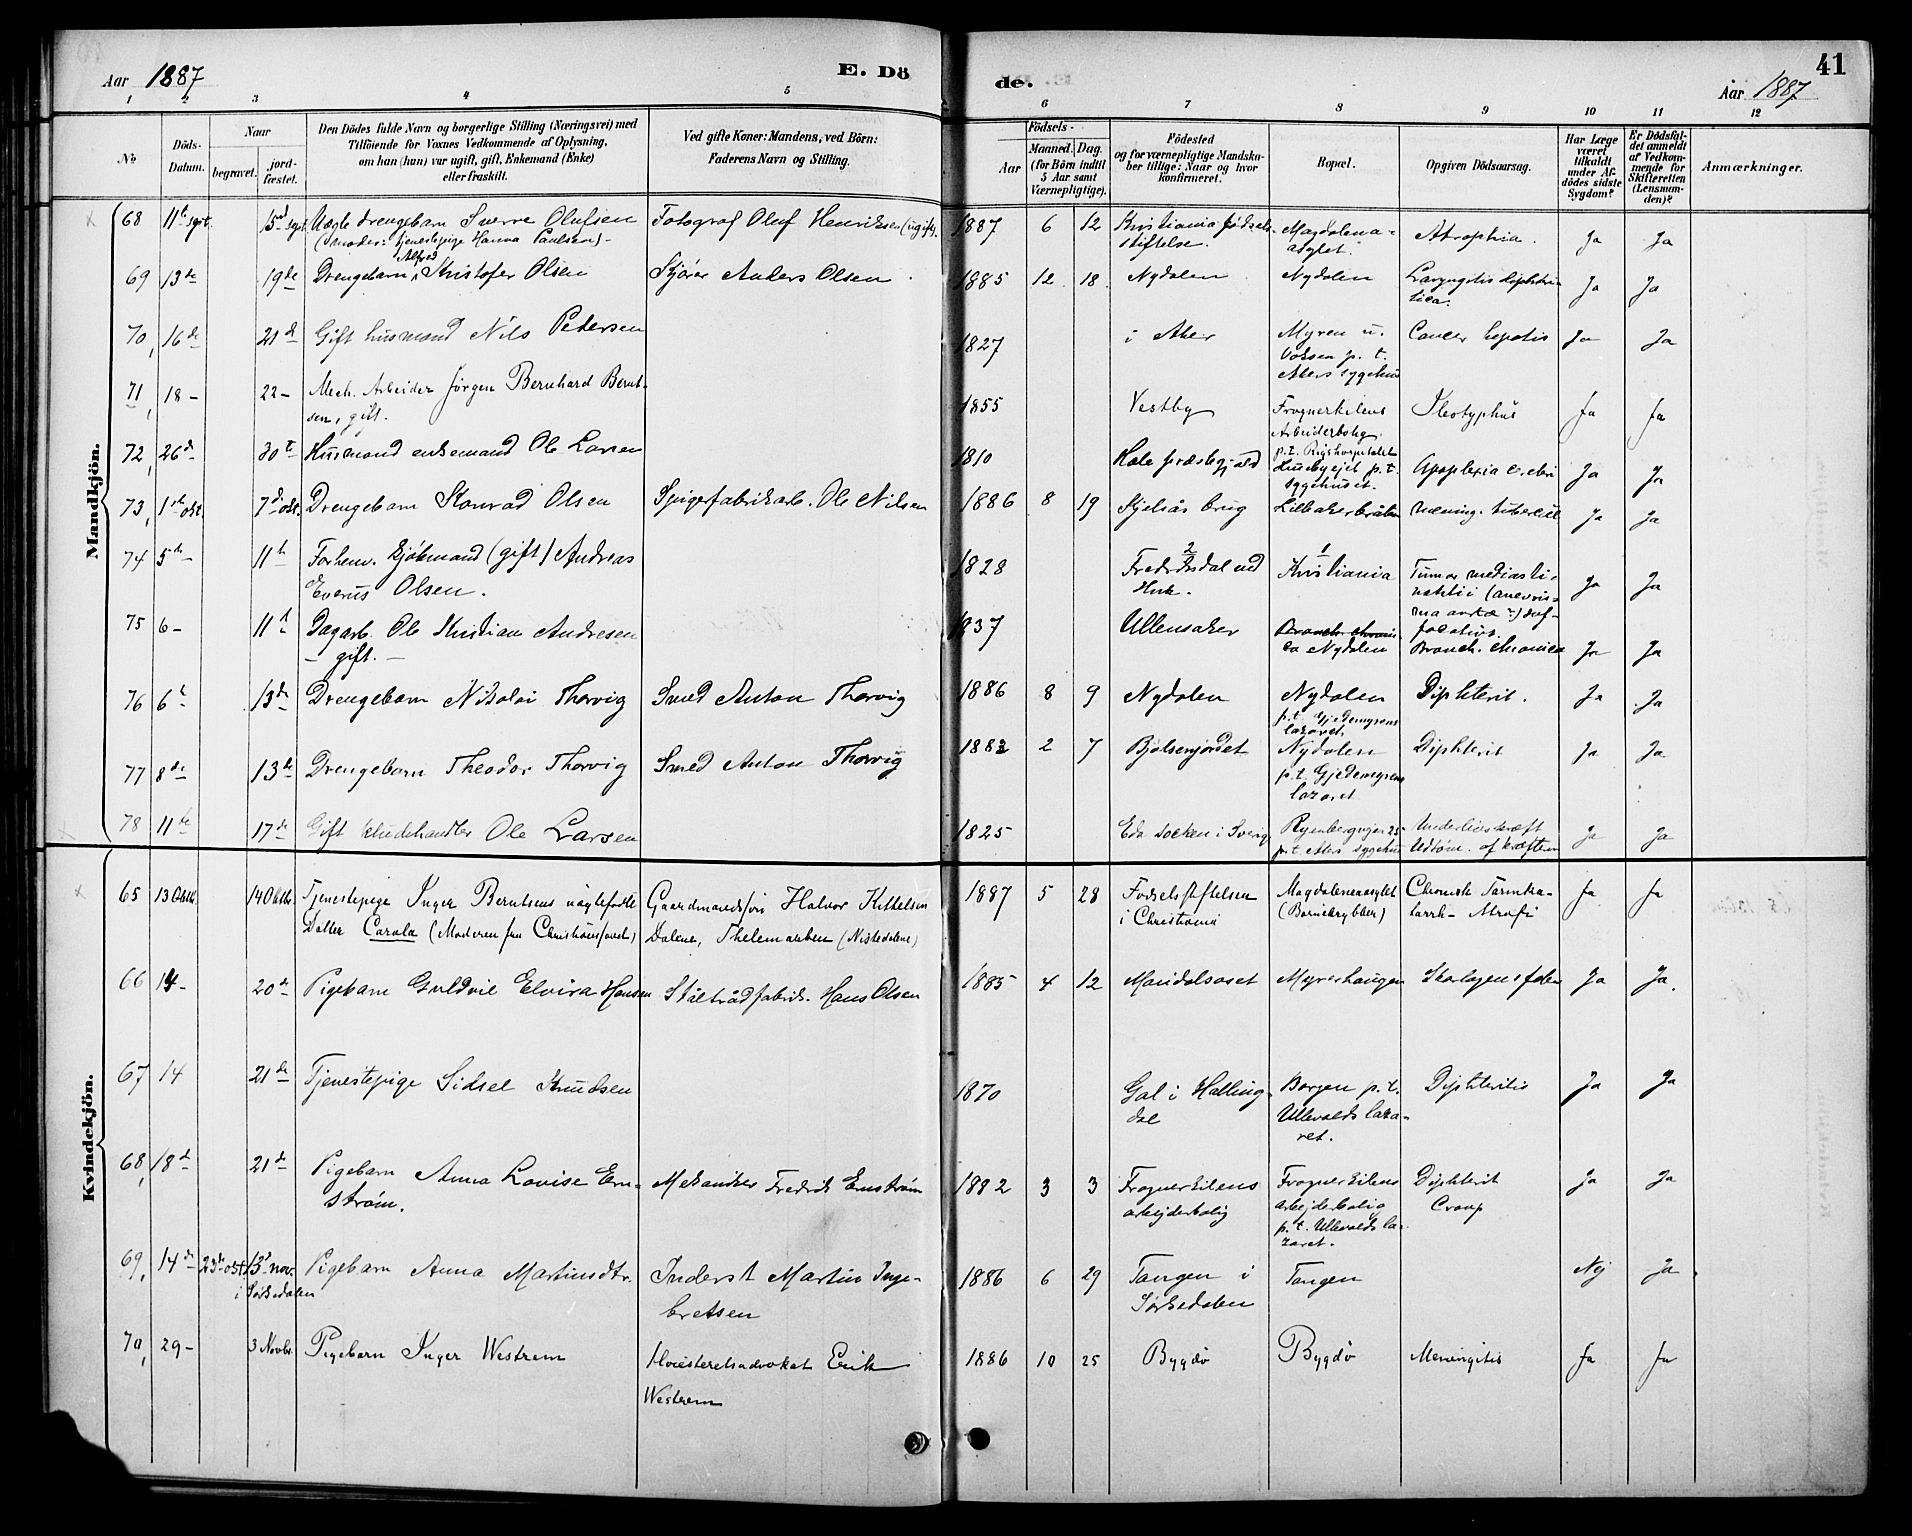 Aar 1887 E. Dö
de. Aar 1887 41
1 2 3 4 5
6 7 8 9 10 11 12
No
Döds-
Datum.
Naar
begravet.
jord-
fæstet.
Den Dödes fulde Navn og borgerlige Stilling (Næringsvei) med
Tilföiende for Voxnes Vedkommende af Oplysning,
om han (hun) var ugift, gift, Enkemand (Enke)
eller fraskilt.
Ved gifte Koner: Mandens, ved Börn:
Faderens Navn og Stilling.
Födsels-
Aar
Maaned. Dag.
(for Börn indtil
5 Aar samt
Værnepligtige).
Födested
og for værnepligtige Mandska-
ber tillige: Naar og hvor
konfirmeret.
Bopæl.
Opgiven Dödsaarsag.
Har Læge
været
tilkaldt
under Af-
dödes sidste
Sygdom?
Er Dödsfal-
det anmeldt
af Vedkom-
mende for
Skifteretten
(Lensman-
den)?
Anmærkninger.
Mandkjön.
68 11te sept. 15de sept. Uægte drengebarn Sverre Olufsen Fotograf Oluf Henriksen (ugift). 1887 6 12 Kristiania fødsels- Magdalena- Atrophia. Ja Ja
(Moder: tjenestepige Hanna Paulsen)- stiftelse. asylet.
69 13de 19de Drengebarn Alfred Kristofer Olsen Kjører Anders Olsen. 1885 12 18 Nydalen Nydalen Laryngitis diphteri- Ja Ja
tica.
70, 16de 21de Gift husmand Nils Pedersen 1827 i Aker Myren u. Cancer hepatis Ja Ja
Voksen p. t.
Akers sygehus
71, 18- 22- Mech. Arbeider Jørgen Bernhard Bernt- 1855 Vestby Frognerkilens Ileotyphus Ja Ja
sen, gift. Arbeiderbolig.
p.t. Rigshospitalet
72, 26de 30te Husmand enkemand Ole Larsen 1810 Hole præstegjæld Husebyejet p. t. Apoplexia cerebri Ja Ja
sygehuset.
73, 1ste okt. 7de okt. Drengebarn Konrad Olsen Spigerfabrikarb. Ole Nilsen 1886 8 19 Kjelsås brug Lilleakerbråten Mening. tubercul Ja Ja
74 5te 11te Forhenv. kjøbmand (gift) Andreas 1828 Fredriksdal ved Kristiania Tumor mediasti- Ja Ja
Everus Olsen. Huk. (anevris-
75 6- 11te Dagarb. Ole Kristian Andresen 1837 Ullensaker Nydalen Bronch. chronica Ja Ja
- gift. -
76 6te 13de Drengebarn Nikolai Thorvig Smed Anton Thorvig 1886 8 9 Nydalen Nydalen Diphterit. Ja Ja
p.t. Gjedemyrens
lazaret.
77 8de 13de Drengebarn Theodor Thorvig Smed Anton Thorvig 1883 2 7 Bjølsenjordet Nydalen Diphterit Ja Ja
p.t. Gjedemyrens
lazaret
78 11te 17de Gift kludehandler Ole Larsen 1825 Eda socken i Sverig Ryenbergvejen 25 Underlivskræft Ja Ja
p.t. Akers sygehus Udtøm. af kræfterne
Kvindekjön.
65 13 Oktb. 14 Oktb. Tjenestepige Inger Berntsens uægtefødte Gaardmandssøn Halvor Kittelsen 1887 5 28 Fødselsstiftelsen Magdalenaasylet Chronisk Tarmka- Ja Ja
Datter Carola (Moderen fra Christianssand) Dalene, Thelemarken (Nissedalene) i Christiania (Børnekrybben) tarrh - Atrofi
66 14- 20de Pigebarn Guldvil Elvira Hansen Ståltrådfabrik. Hans Olsen 1885 4 12 Maridalsoset Myrerhaugen Skarlagensfeber Ja Ja.
67 14 21de Tjenestepige Sidsel Knudsen 1870 Gol i Halling- Borgen p. t. Diphteritis Ja Ja
dal Ullevolds laza-
ret.
68, 18de 21de Pigebarn Anna Lovise Ern- Mekaniker Fredrik Ernstrøm 1882 3 3 Frognerkilens Frognerkilens Diphterit Ja Ja
strøm. arbejderbolig arbejderbolig Croup
p. t. Ullevolds la-
zaret.
69, 14de 23de okt. 13de nov. Pigebarn Anna Martinsdtr. Inderst Martin Inge- 1886 6 29 Tangen i Tangen Nej Ja
i Sørkedalen bretsen Sørkedalen
70, 29- 3 Novbr. Pigebarn Inger Westrem Høiesteretsadvokat Erik 1886 10 25 Bygdø Bygdø Meningitis Ja Ja
Westrem